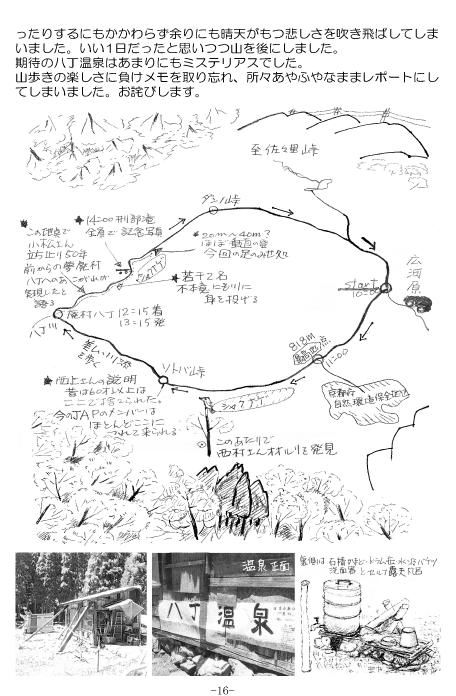 ったりするにもかかわらず余りにも晴天がもつ悲しさを吹き飛ばしてしま
いました。いい1日だったと思いつつ山を後にしました。
期待の八丁温泉はあまりにもミステリアスでした。
山歩きの楽しさに負けメモを取り忘れ、所々あやふやなままレポートにし
てしまいました。お詫びします。
至佐々里峠
ダンノ峠
★14=00 刑部滝
全員で記念写真
★この地点で
小松さん
立ち止り50年
前からの夢廃村
八丁へのあこがれが
実現したと
語る
★20m〜40m?
ほぼ垂直の壁
今回の足のみせ処
シャクナゲ
★若干2名
不本意にも川に
身を投げる
start
10=00
広河原
廃村八丁 12=15着
13=15発
八丁川
美しい川に沿って歩く
818m
最高地点
11=00
京都府
自然環境保全地域
ソトバ峠
★西上さんの説明
昔は60才以上は
ここで捨てられた。
今のJAPのメンバーは
ほとんどここに
つれて来られる
シャクナゲ
このあたりで
西村さんオオルリを発見
温泉正面
八丁温泉
石積のかまど・ドラム缶・水くみバケツ
洗面器とセルフ露天風呂
-16-